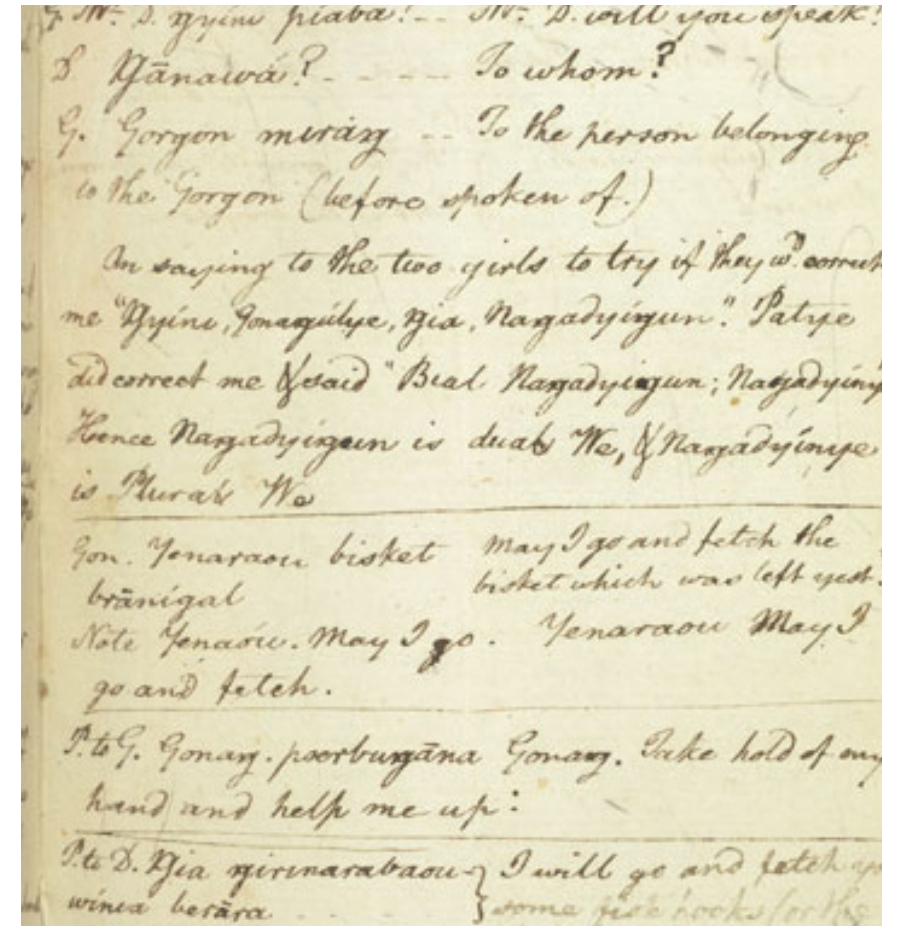 G. Mr. D. ŋyini piaba? -- Mr. D. will you speak?
D Ŋānawá? - - - - - To whom?
G. Gorgon miráŋ -- To the person belonging
to the Gorgon (before spoken of.)
On saying to the two girls to try if they wd. correct
me "Ŋyíni, Gonagúlye, ŋia, Naŋadyíŋun". Patye
did correct me & said "Bial Naŋadyíŋun; Naŋadyíny
Hence Naŋadyíŋun is dual We, & Naŋadyínye
is Plural We
Gon. Yenaraou bisket May I go and fetch the
brānígal bisket which was left yest.
Note Yenaóu. May I go. Yenaraou May I
go and fetch.
P. to G. Gonaŋ. poerbuŋāna Gonaŋ. Take hold of my
hand and help me up:
P. to D. Ŋia ŋirinarabaou- } I will go and fetch yo
winia berāra - - - some fish hooks for the